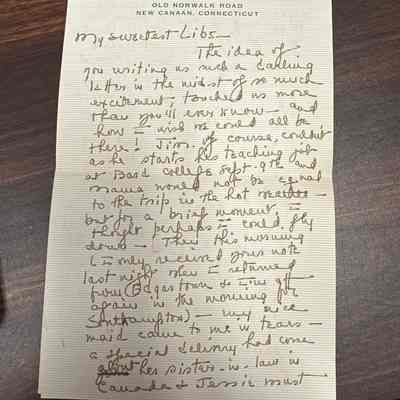 OLD NORWALK ROAD
NEW CANAAN, CONNECTICUT
My sweetest Libs —
The idea of
you writing us such a darling
letter in the midst of so much
excitement, touched us more
than you'll ever know — and
how I wish we could all be
there! Jim, of course, couldn't
as he starts his teaching job
at Bard College Sept. 9th and
Mama would not be equal
to the trip in the hot weather —
but for a brief moment, I
thought perhaps I could fly
down — Then this morning
(I only received your note
last night when I returned
from Edgartown &
again in the morning for
Southampton) — my nice
maid came to me in tears —
a special delivery had come
her sister-in-law in
Canada & Jessie must